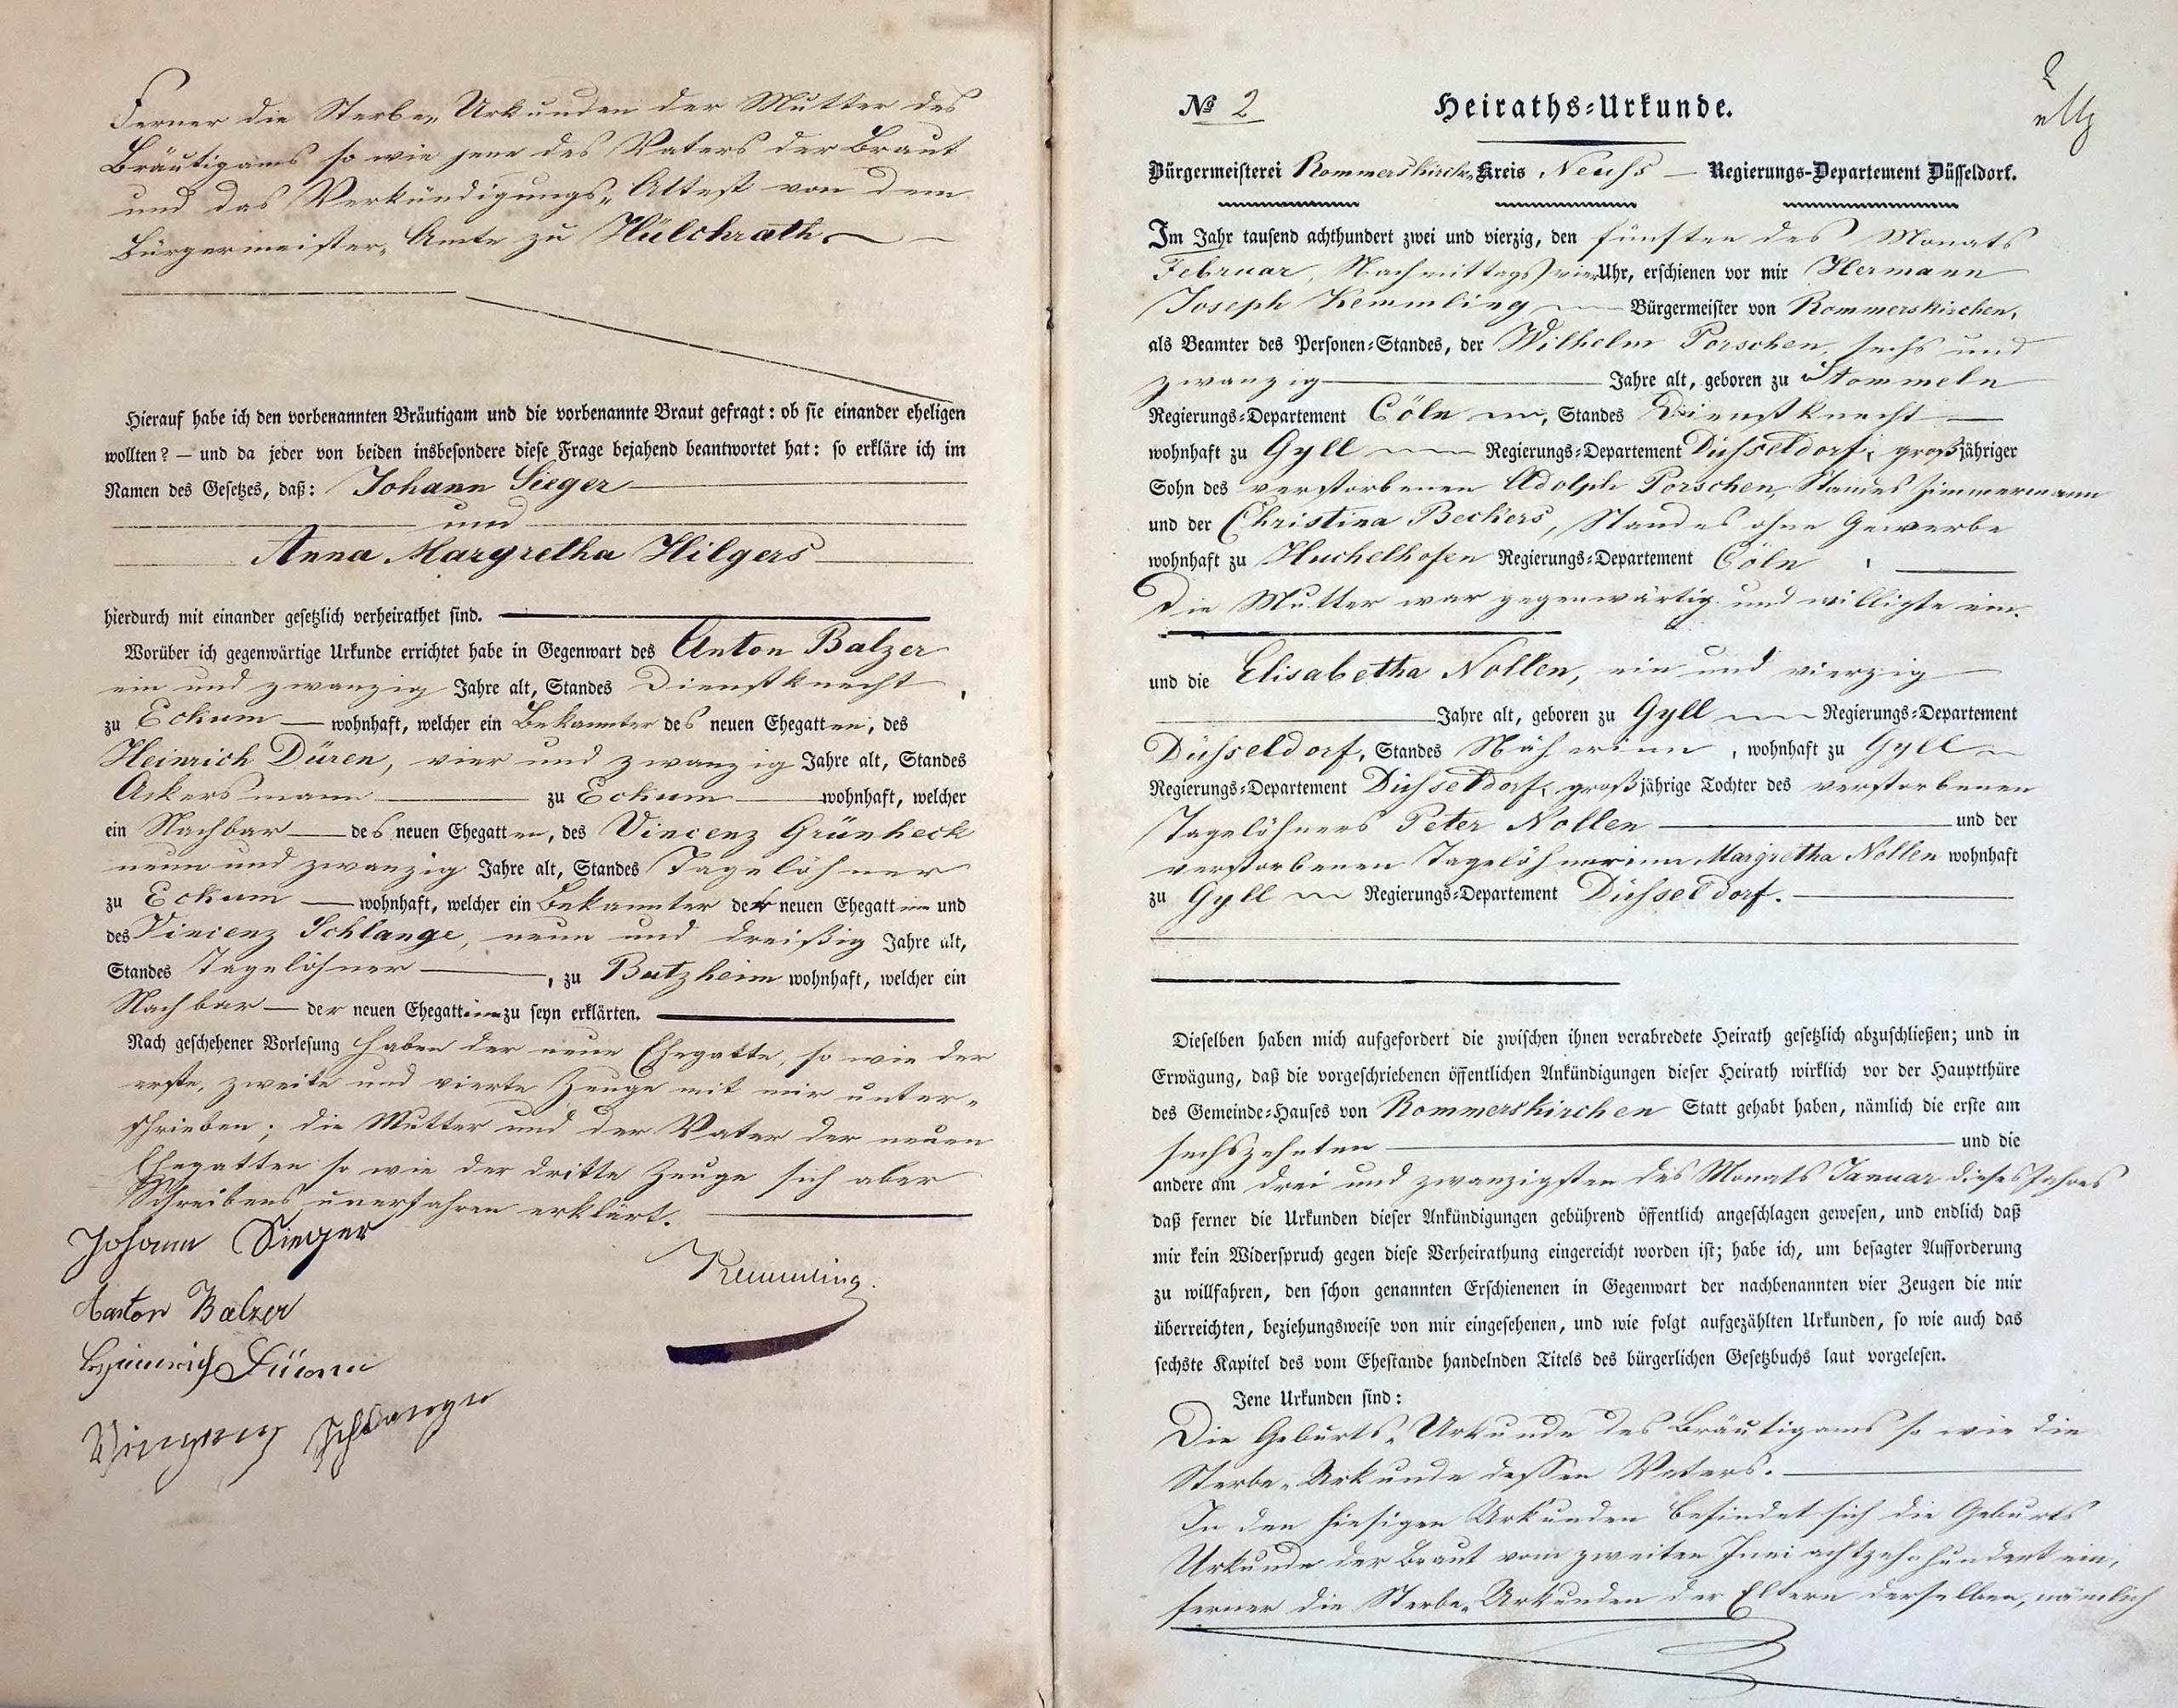 Ferner die Sterbe-Urkunden der Mutter des
Bräutigams so wie jene des Vaters der Braut
und das Verkündigungs-Attest von dem
Bürgermeister-Amte zu Hülchrath.
Hierauf habe ich den vorbenannten Bräutigam und die vorbenannte Braut gefragt: ob sie einander eheligen
wollten? — und da jeder von beiden insbesondere diese Frage bejahend beantwortet hat: so erkläre ich im
Namen des Gesetzes, daß: Johann Sieger
und
Anna Margretha Hilgers
hierdurch mit einander gesetzlich verheirathet sind.
Worüber ich gegenwärtige Urkunde errichtet habe in Gegenwart des Anton Balzer
ein und zwanzig Jahre alt, Standes Dienstknecht,
zu Eckum — wohnhaft, welcher ein Bekannter des neuen Ehegatten, des
Heinrich Düren, vier und zwanzig Jahre alt, Standes
Ackersmann zu Eckum wohnhaft, welcher
ein Nachbar des neuen Ehegatten, des Vincenz Grünheck
neun und zwanzig Jahre alt, Standes Tagelöhner
zu Eckum — wohnhaft, welcher ein Bekannter der neuen Ehegattinn und
des Vincenz Schlange, neun und dreißig Jahre alt,
Standes Tagelöhner, zu Butzheim wohnhaft, welcher ein
Nachbar — der neuen Ehegattinn zu seyn erklärten.
Nach geschehener Vorlesung haben der neue Ehegatte, so wie der
erste, zweite und vierte Zeuge mit mir unter-
schrieben; die Mutter und der Vater der neuen
Ehegatten so wie der dritte Zeuge sich aber
Schreibens unerfahren erklärt.
Johann Sieger
Kemmling.
Anton Balzer
Heinrich Düren
Vinzenz Schlange
2
№ 2 Heiraths-Urkunde.
Bürgermeisterei Rommerskirchen Kreis Neuss — Regierungs-Departement Düsseldorf.
Im Jahr tausend achthundert zwei und vierzig, den fünften des Monats
Februar, Nachmittags vier Uhr, erschienen vor mir Hermann
Joseph Kemmling Bürgermeister von Rommerskirchen,
als Beamter des Personen-Standes, der Wilhelm Porschen, sechs und
zwanzig Jahre alt, geboren zu Stommeln
Regierungs-Departement Cöln, Standes Dienstknecht
wohnhaft zu Gyll Regierungs-Departement Düsseldorf, großjähriger
Sohn des verstorbenen Adolph Porschen, Standes Zimmermann
und der Christina Beckers, Standes ohne Gewerbe
wohnhaft zu Huchelhofen Regierungs-Departement Cöln,
Die Mutter war gegenwärtig und willigte ein.
und die Elisabetha Nollen, ein und vierzig
Jahre alt, geboren zu Gyll Regierungs-Departement
Düsseldorf, Standes Näherinn, wohnhaft zu Gyll
Regierungs-Departement Düsseldorf, großjährige Tochter des verstorbenen
Tagelöhners Peter Nollen und der
verstorbenen Tagelöhnerinn Margretha Nollen wohnhaft
zu Gyll Regierungs-Departement Düsseldorf.
Dieselben haben mich aufgefordert die zwischen ihnen verabredete Heirath gesetzlich abzuschließen; und in
Erwägung, daß die vorgeschriebenen öffentlichen Ankündigungen dieser Heirath wirklich vor der Hauptthüre
des Gemeinde-Hauses von Rommerskirchen Statt gehabt haben, nämlich die erste am
sechszehnten und die
andere am drei und zwanzigsten des Monats Januar dieses Jahres
daß ferner die Urkunden dieser Ankündigungen gebührend öffentlich angeschlagen gewesen, und endlich daß
mir kein Widerspruch gegen diese Verheirathung eingereicht worden ist; habe ich, um besagter Aufforderung
zu willfahren, den schon genannten Erschienenen in Gegenwart der nachbenannten vier Zeugen die mir
überreichten, beziehungsweise von mir eingesehenen, und wie folgt aufgezählten Urkunden, so wie auch das
sechste Kapitel des vom Ehestande handelnden Titels des bürgerlichen Gesetzbuchs laut vorgelesen.
Jene Urkunden sind:
Die Geburts-Urkunde des Bräutigams so wie die
Sterbe-Urkunde dessen Vaters.
In den hiesigen Urkunden befindet sich die Geburts
Urkunde der Braut vom zweiten Juni achtzehnhundert ein,
ferner die Sterbe-Urkunden der Eltern derselben, nämlich